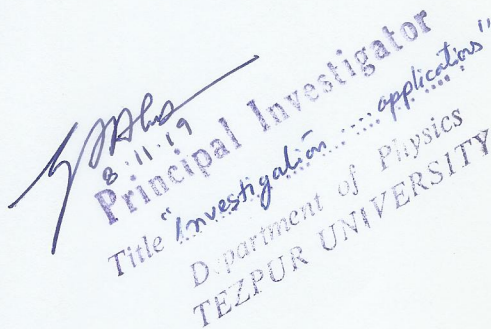 8.11.19
Principal Investigator
Title "Investigation ...... applications"
Department of Physics
TEZPUR UNIVERSITY